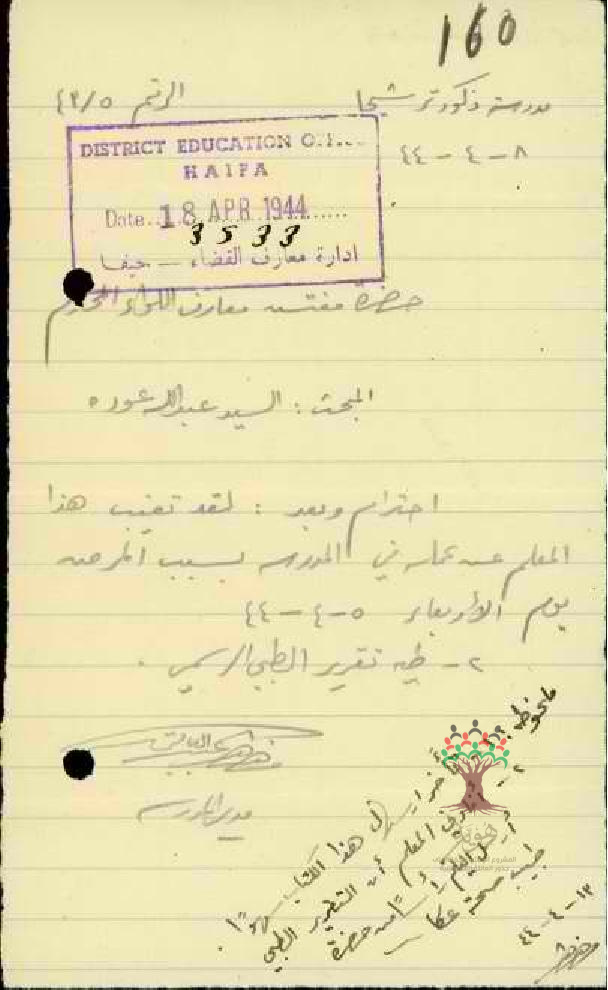 160
مدرسة ذكور ترشيحا
الرقم ٤٢/٥
٨-٤-٤٤
DISTRICT EDUCATION
HAIFA
Date 18 APR 1944
3533
ادارة معارف القضاء — حيفا
حضرة مفتش معارف اللواء المحترم
المبحث : السيد عبدالله عوده
احترام وبعد : لقد تغيب هذا
المعلم عن عمله في المدرسه بسبب المرض
يوم الاربعاء ٥-٤-٤٤
٢- طيه تقرير الطبي الرسمي .
مدير المدرسه
ملحوظه :
تأخر ارسال هذا الكتاب سهواً .
٢- المعلم أن التقرير الطبي
أرسل اليكم رأساً من حضرة
طبيب صحة عكا
١٣-٤-٤٤